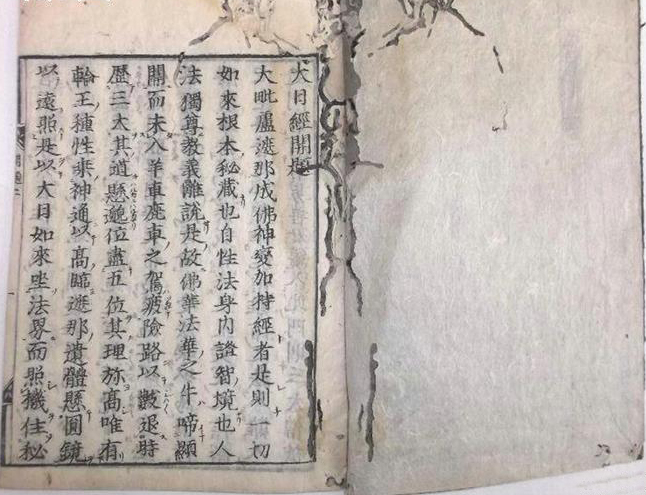 大日經開題
大毗盧遮那成佛神變加持經者是則一切
如來根本秘藏也自性法身內證智境也人
法獨尊教義離說是故佛華法華之牛啼顯
關而未入羊車鹿車之駕疲險路以數退時
歷三大其道懸邈位盡五位其理弥高唯有
輪王種性乘神通以高臨遮那遺體懸圓鏡
以遠照是以大日如來坐法界而照機住秘